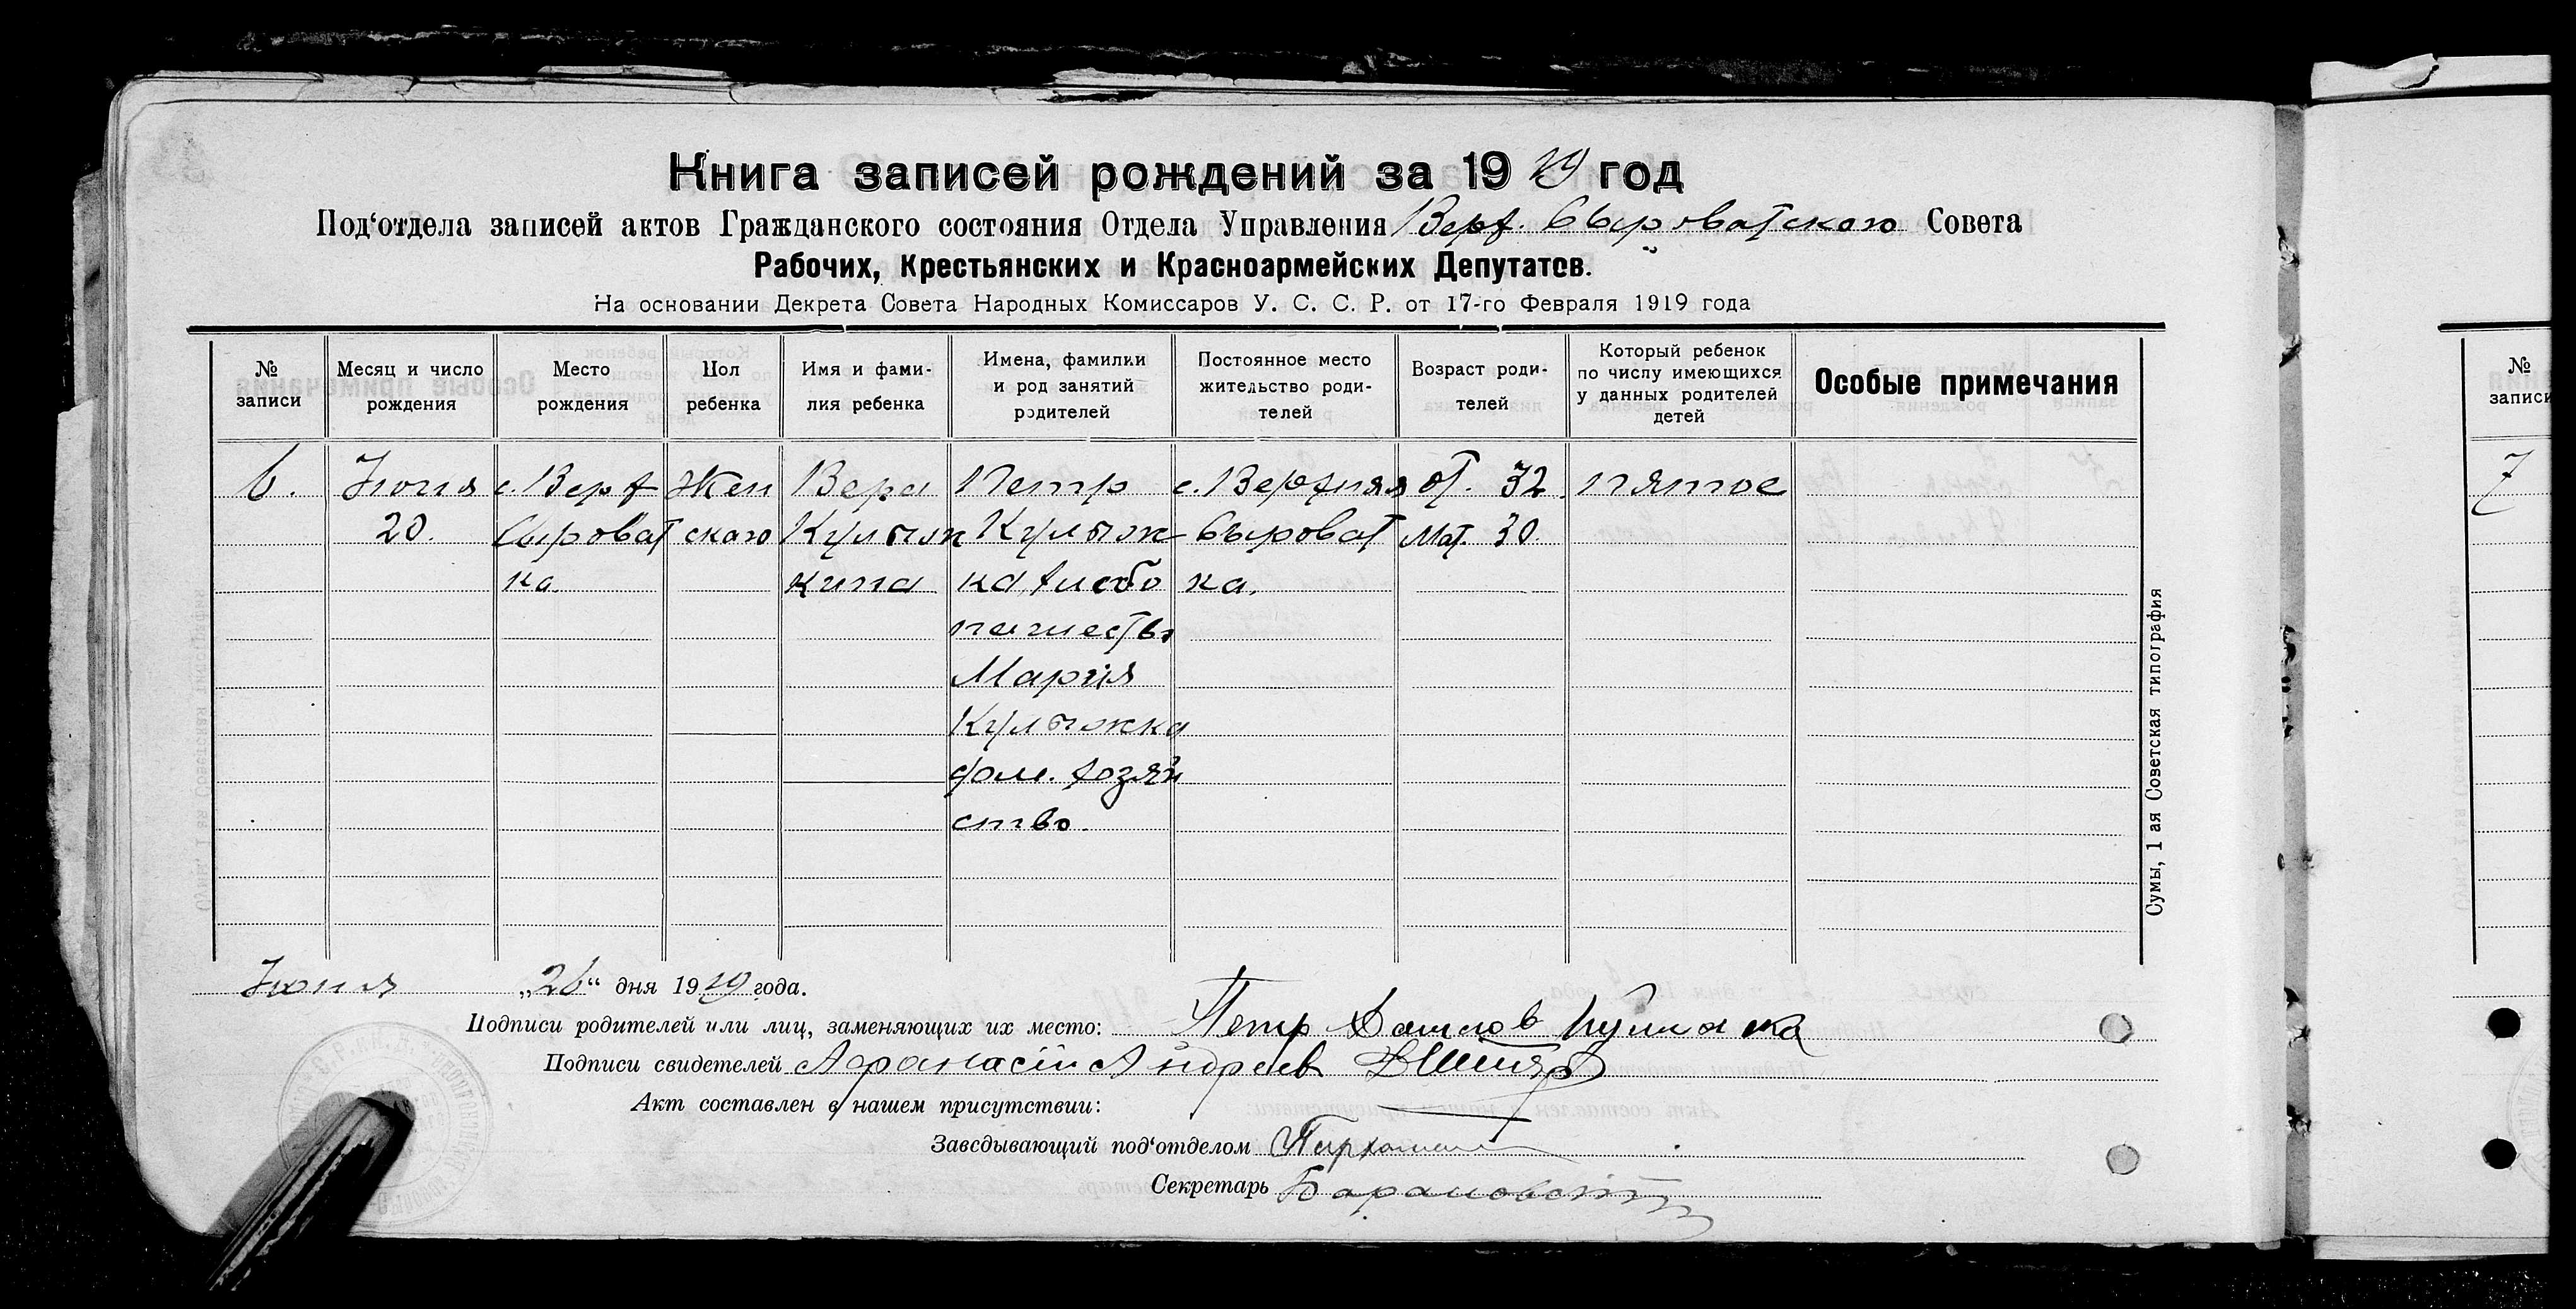 Книга записей рождений за 1919 год
Под‘отдела записей актов Гражданского состояния Отдела Управления Верх. Сыроватского Совета
Рабочих, Крестьянских и Красноармейских Депутатов.
На основании Декрета Совета Народных Комиссаров У. С. С. Р. от 17-го Февраля 1919 года
№ записи
Месяц и число рождения
Место рождения
Пол ребенка
Имя и фамилия ребенка
Имена, фамилии и род занятий родителей
Постоянное место жительство родителей
Возраст родителей
Который ребенок по числу имеющихся у данных родителей детей
Особые примечания
№ записи
6. Июня с. Верх Жен Вера Петр с. Верхняя от. 32. пятое 7
20. Сыроват ского Кулыж Сыроват Мат. 30
ка. кина ка, хлебо ка.
пашество
Мария
Кулыжка
дом. хозяй
ство.
Июня „26“ дня 1919 года.
Подписи родителей или лиц, заменяющих их место: Петр
Подписи свидетелей Афанасій Андреев
Акт составлен в нашем присутствии:
Заведывающий под‘отделом
Секретарь Барановскій
Сумы, 1 ая Советская типография